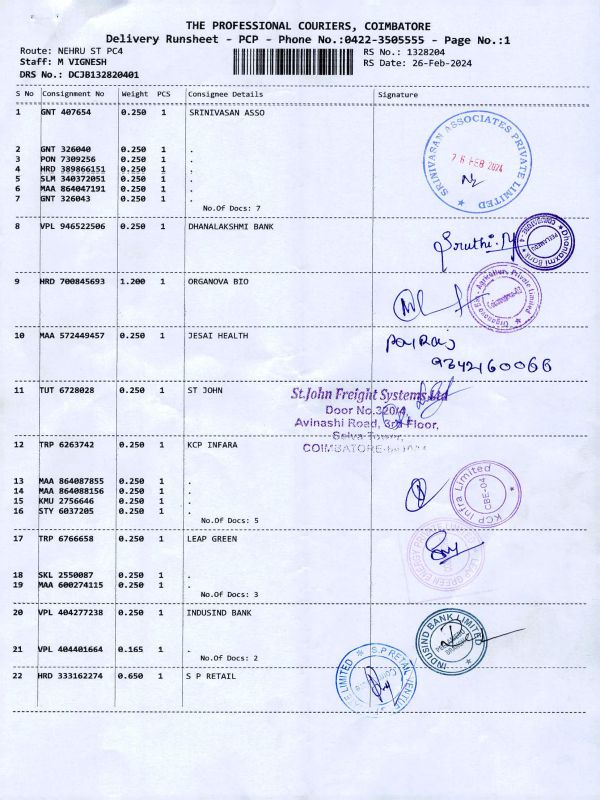 THE PROFESSIONAL COURIERS, COIMBATORE
Delivery Runsheet - PCP - Phone No.:0422-3505555 - Page No.:1
Route: NEHRU ST PC4 RS No.: 1328204
Staff: M VIGNESH RS Date: 26-Feb-2024
DRS No.: DCJB132820401
S No Consignment No Weight PCS Consignee Details Signature
1 GNT 407654 0.250 1 SRINIVASAN ASSO
SRINIVASAN ASSOCIATES PRIVATE LIMITED
26 FEB 2024
2 GNT 326040 0.250 1 .
3 PON 7309256 0.250 1 .
4 HRD 389866151 0.250 1 .
5 SLM 340372051 0.250 1 .
6 MAA 864047191 0.250 1 .
7 GNT 326043 0.250 1 .
No.Of Docs: 7
8 VPL 946522506 0.250 1 DHANALAKSHMI BANK
Sruthi.M
Dhanlaxmi Bank
9 HRD 700845693 1.200 1 ORGANOVA BIO
Agriculture Private Limited
10 MAA 572449457 0.250 1 JESAI HEALTH
9342160066
11 TUT 6728028 0.250 1 ST JOHN
St.John Freight Systems Ltd
Door No.320/4
Avinashi Road, 3rd Floor,
Selva Tower,
COIMBATORE
12 TRP 6263742 0.250 1 KCP INFARA
13 MAA 864087855 0.250 1 .
14 MAA 864088156 0.250 1 .
15 KMU 2756646 0.250 1 .
16 STY 6037205 0.250 1 .
No.Of Docs: 5
KCP Infra Limited
CBE-04
17 TRP 6766658 0.250 1 LEAP GREEN
LEAP GREEN ENERGY PRIVATE LIMITED
18 SKL 2550087 0.250 1 .
19 MAA 600274115 0.250 1 .
No.Of Docs: 3
20 VPL 404277238 0.250 1 INDUSIND BANK
INDUSIND BANK LIMITED
21 VPL 404401664 0.165 1 .
No.Of Docs: 2
22 HRD 333162274 0.650 1 S P RETAIL
S.P RETAIL
LIMITED